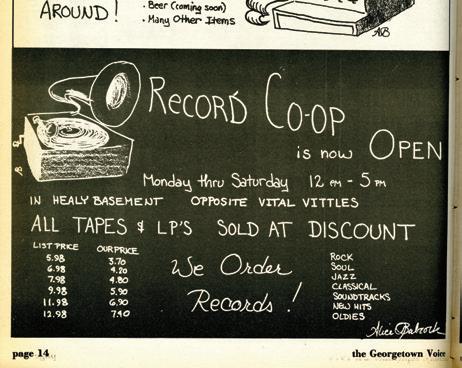 AROUND!
• Beer (coming soon)
• Many Other Items
AB
RECORD CO-OP
is now OPEN
Monday thru Saturday 12 PM - 5 PM
IN HEALY BASEMENT OPPOSITE VITAL VITTLES
ALL TAPES & LP'S SOLD AT DISCOUNT
LIST PRICE OUR PRICE
5.98 3.70
6.98 4.20
7.98 4.80
9.98 5.90
11.98 6.90
12.98 7.40
We Order
Records!
ROCK
SOUL
JAZZ
CLASSICAL
SOUNDTRACKS
NEW HITS
OLDIES
Alice Babcock
page 14
the Georgetown Voice